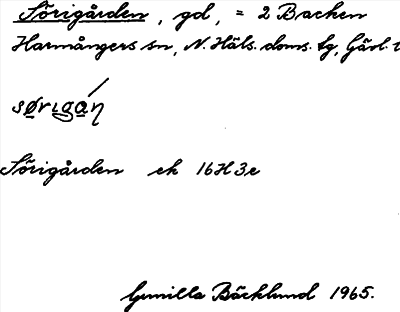 Sörigården, gd, = 2 Backen
Harmångers sn, N. Häls. doms. tg, Gävl. l
Sörigården ek 16H3e
Gunilla Bäcklund 1965.